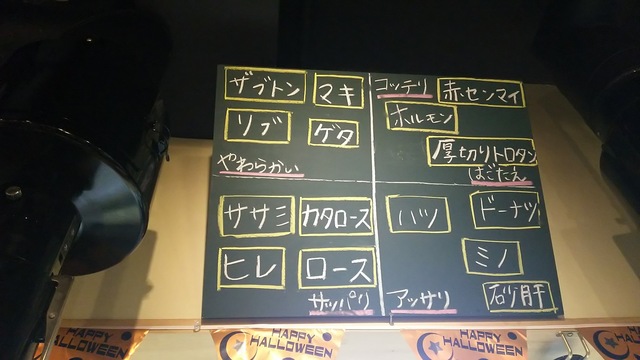 ザブトン マキ
リブ ゲタ
やわらかい
コッテリ 赤センマイ
ホルモン
厚切りトロタン
はごたえ
ササミ カタロース
ヒレ ロース
サッパリ
ハツ ドーナツ
ミノ
アッサリ 砂肝
HAPPY HALLOWEEN
HAPPY HALLOWEEN
HAPPY HALLOWEEN